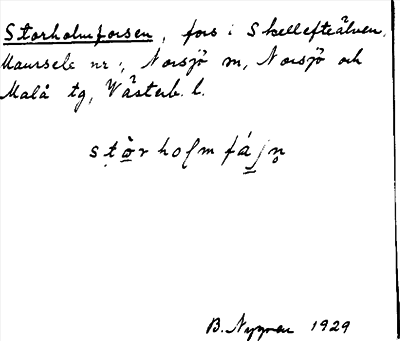 Storholmforsen, fors i Skellefteälven,
Maursele nr:, Norsjö sn, Norsjö och
Malå tg, Västerb. l.
stò̠rholmfá̠jn̥
B. Nygren 1929